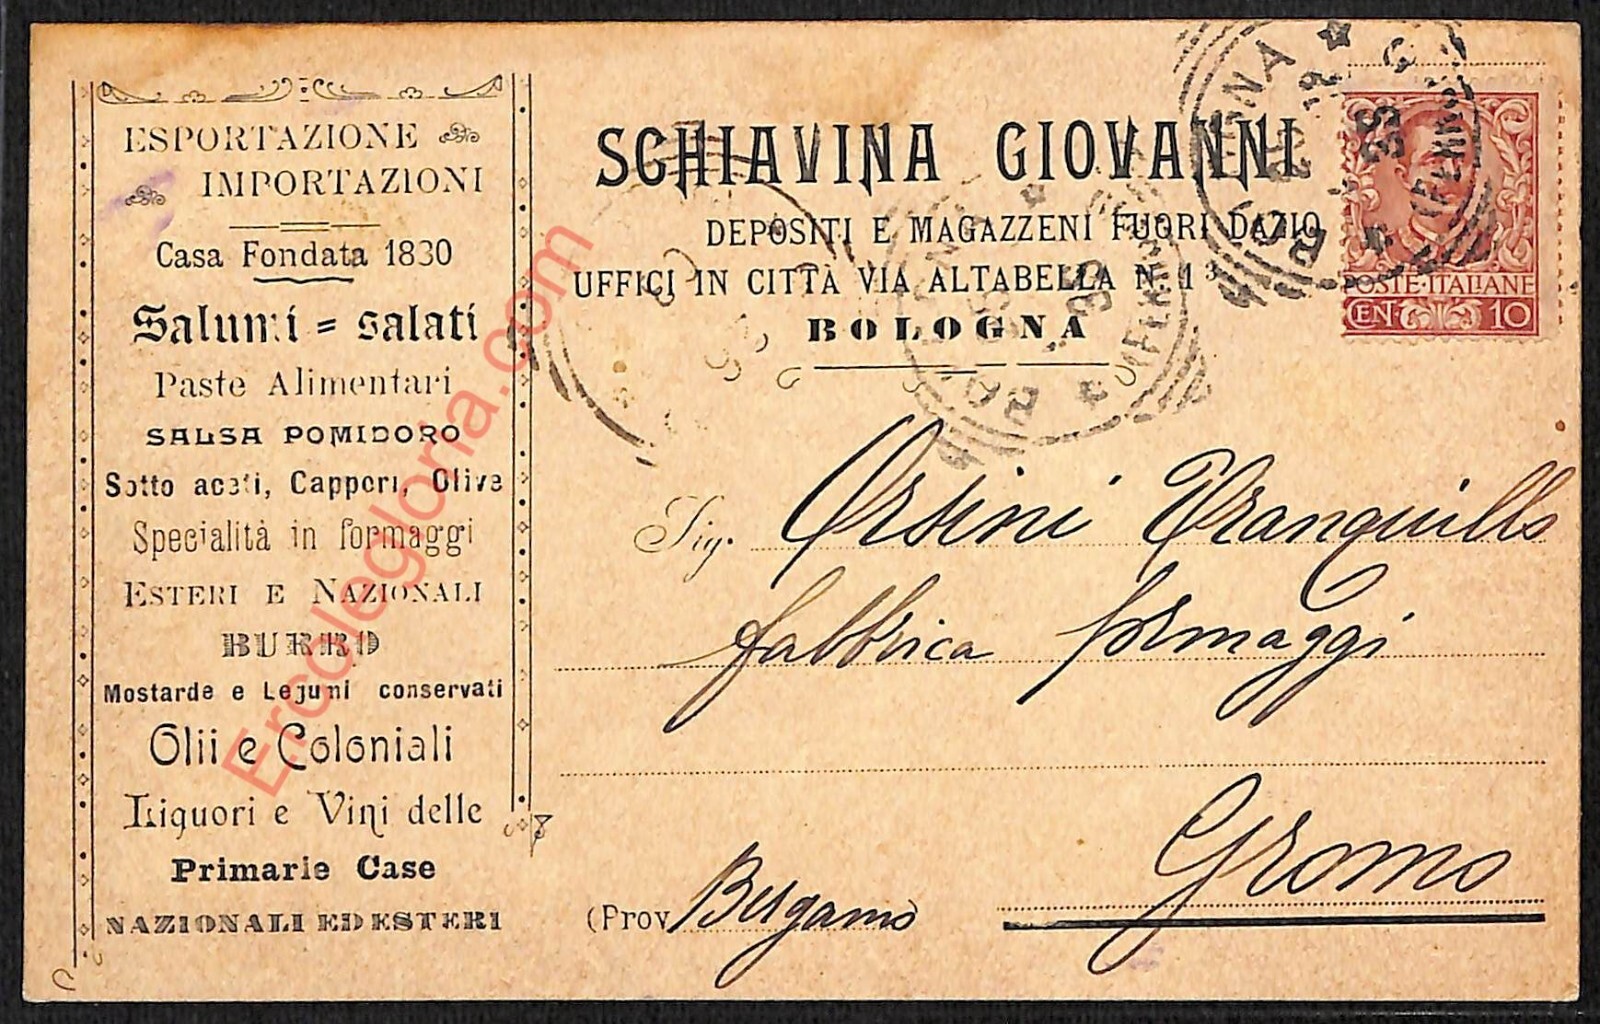 ESPORTAZIONE
IMPORTAZIONI
Casa Fondata 1830
Salumi = salati
Paste Alimentari
SALSA POMIDORO
Sotto aceti, Capperi, Olive
Specialità in formaggi
ESTERI E NAZIONALI
BURRO
Mostarde e Legumi conservati
Olii e Coloniali
Liquori e Vini delle
Primarie Case
NAZIONALI ED ESTERI
SCHIAVINA GIOVANNI
DEPOSITI E MAGAZZENI FUORI DAZIO
UFFICI IN CITTÀ VIA ALTABELLA N. 13
BOLOGNA
POSTE·ITALIANE
CEN. 10
Sig. Orsini Tranquillo
fabbrica formaggi
Gromo
(Prov. Bergamo)
Ercolegloria.com